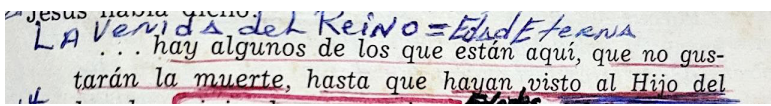 Jesús había dicho:
LA Venida del ReiNO = Edad Eterna
. . . hay algunos de los que están aquí, que no gus-
tarán la muerte, hasta que hayan visto al Hijo del